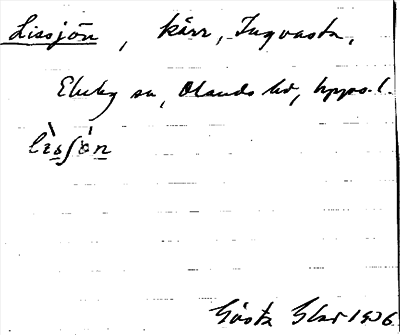 Lissjön, kärr, Ingvasta,
Ekeby sn, Olands hd, Upps. l.
lìsʃón
Gösta Elze 1936.